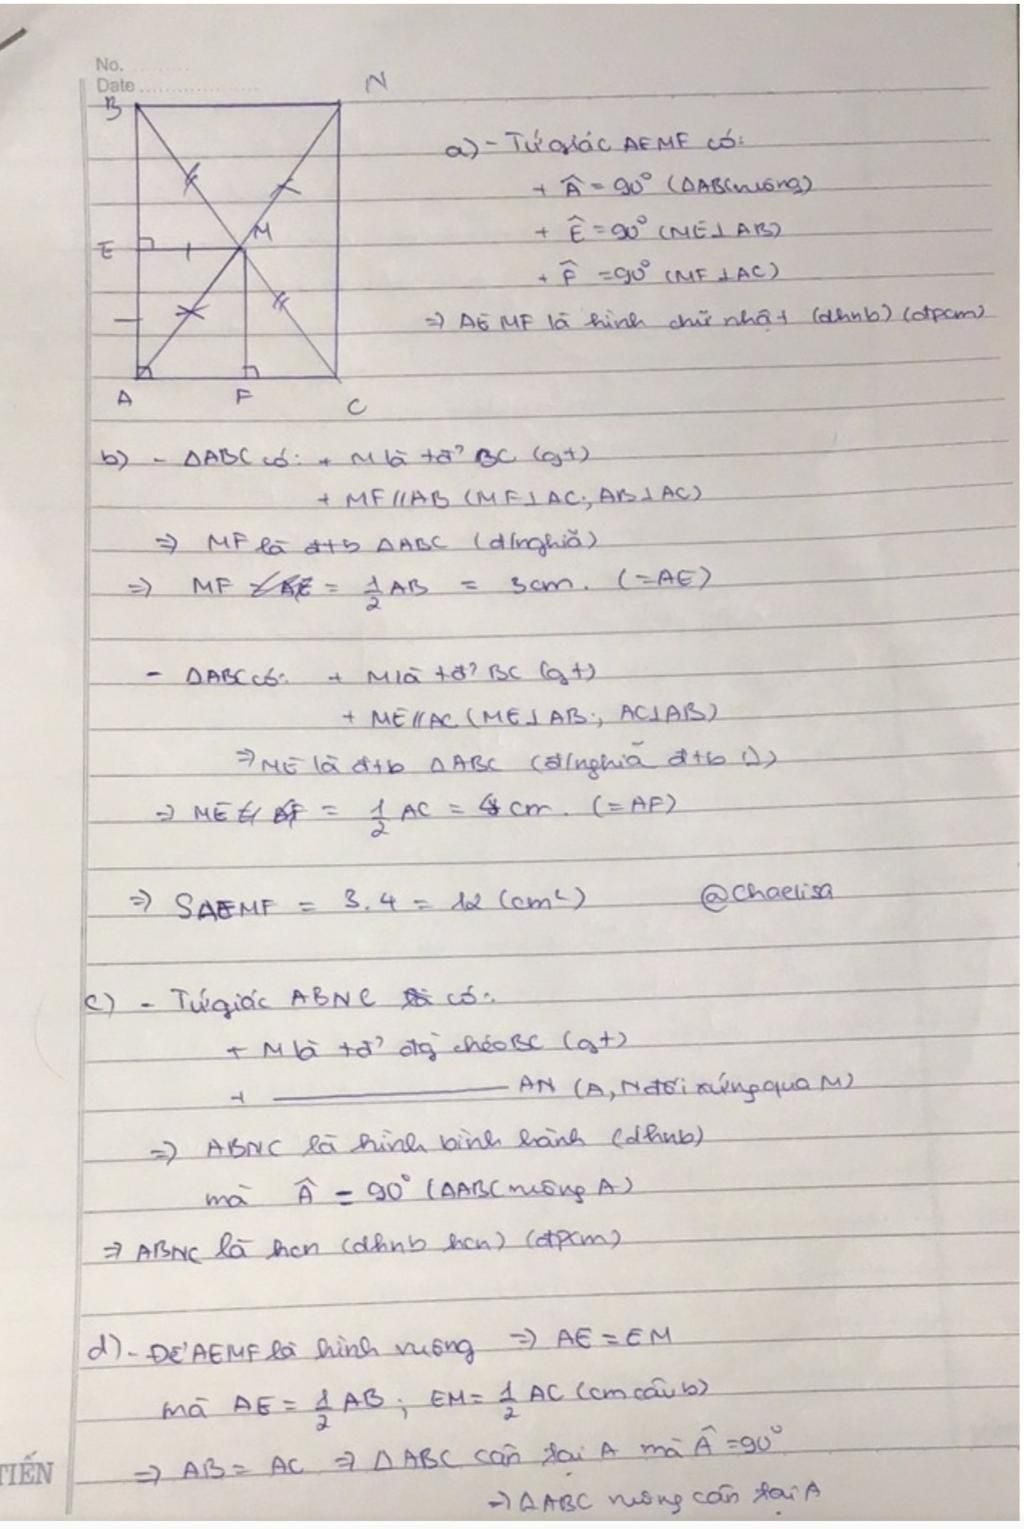 No.
Date
B
N
E
M
A
F
C
a) - Tứ giác AEMF có:
+ Â = 90° (ΔABC vuông)
+ Ê = 90° (ME⊥AB)
+ F̂ = 90° (MF⊥AC)
⇒ AEMF là hình chữ nhật (dhnb) (đpcm)
b) - ΔABC có: + M là tđ' BC (gt)
+ MF//AB (MF⊥AC; AB⊥AC)
⇒ MF là đtb ΔABC (đ/nghĩa)
⇒ MF = 1/2 AB = 3cm. (=AE)
- ΔABC có: + M là tđ' BC (gt)
+ ME//AC (ME⊥AB; AC⊥AB)
⇒ ME là đtb ΔABC (đ/nghĩa đtb Δ)
⇒ ME = 1/2 AC = 4cm. (=AF)
⇒ SAEMF = 3.4 = 12 (cm²) @Chaelisa
c) - Tứ giác ABNC có:
+ M là tđ' đg chéo BC (gt)
+ ———————— AN (A, N đối xứng qua M)
⇒ ABNC là hình bình hành (dhnb)
mà Â = 90° (ΔABC vuông A)
⇒ ABNC là hcn (dhnb hcn) (đpcm)
d) - Để AEMF là hình vuông ⇒ AE = EM
mà AE = 1/2 AB ; EM = 1/2 AC (cm câu b)
⇒ AB = AC ⇒ ΔABC cân tại A mà Â = 90°
⇒ ΔABC vuông cân tại A
TIẾN